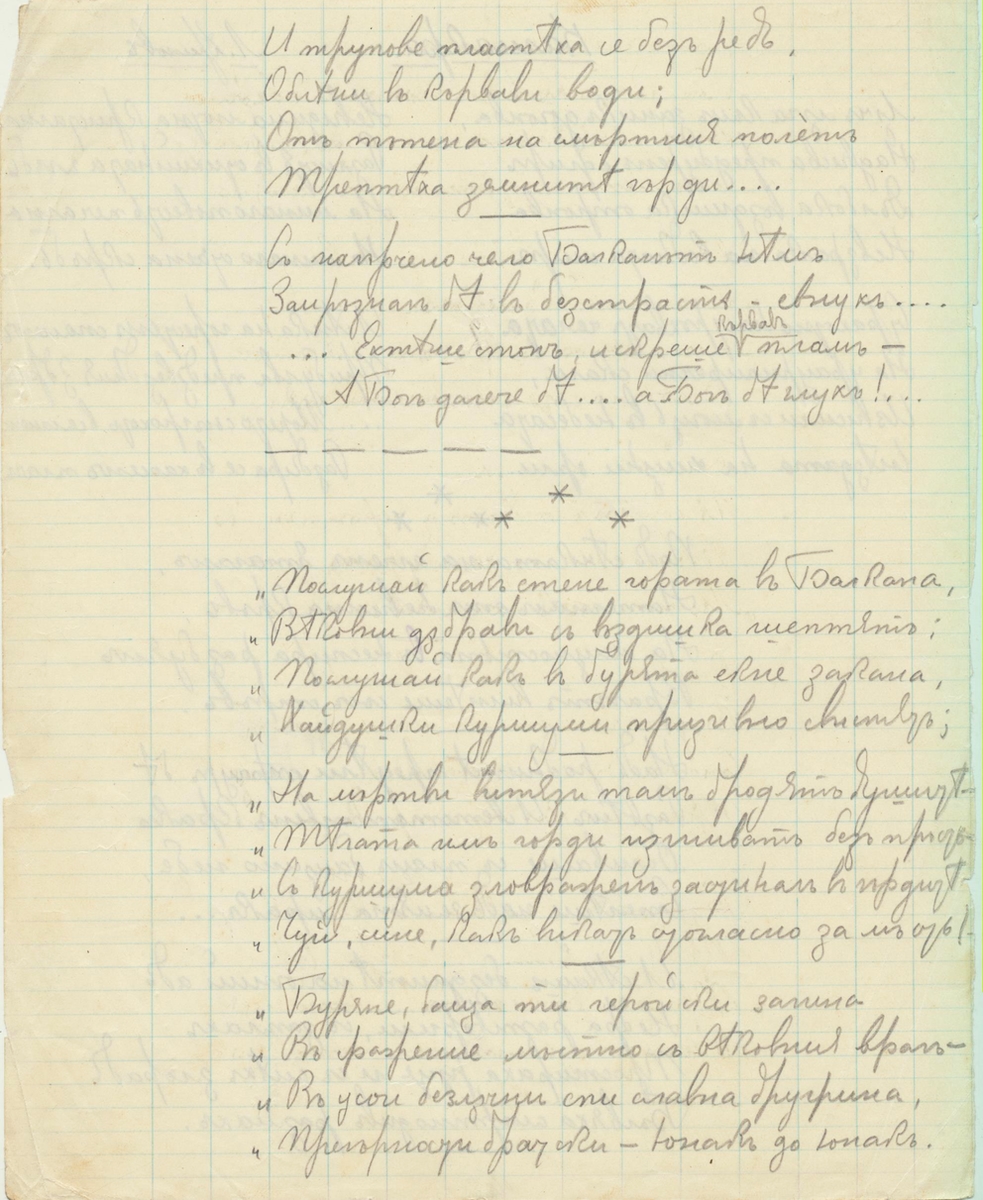 И трупове пластѣха се безъ редъ,
Облѣни въ кървави води;
Отъ тътена на смъртния полètъ
Трептѣха земнитѣ гърди....
Съ напрчено чело Балканътъ нѣмъ
Замръзналъ бѣ въ безстрастье - евнухъ....
... Ектѣше стонъ, искреше кървавъ пламъ —
А Богъ далече бѣ.... а Богъ бѣ глухъ!...
— — — — —
* * *
„ Послушай какъ стене гората въ Балкана,
„ Вѣковни дѫбрави съ въздишка шептятъ;
„ Послушай какъ въ бурята екне закана,
„ Хайдушки куршуми призивно свистятъ;
„ На мъртви витязи тамъ бродятъ душитѣ —
„ Тѣлата имъ горди изгниватъ безъ
„ Съ куршума зловраженъ заспикалъ въ гърдитѣ
„ Чуй, сине, какъ викатъ съгласно за мъсть!
„ Буряне, баща ти геройски загина
„ Въ сражение мъстно съ вѣковния врагъ —
„ Въ усои безлунни спи славна дружина,
„ Прегърнати братски — юнакъ до юнакъ.